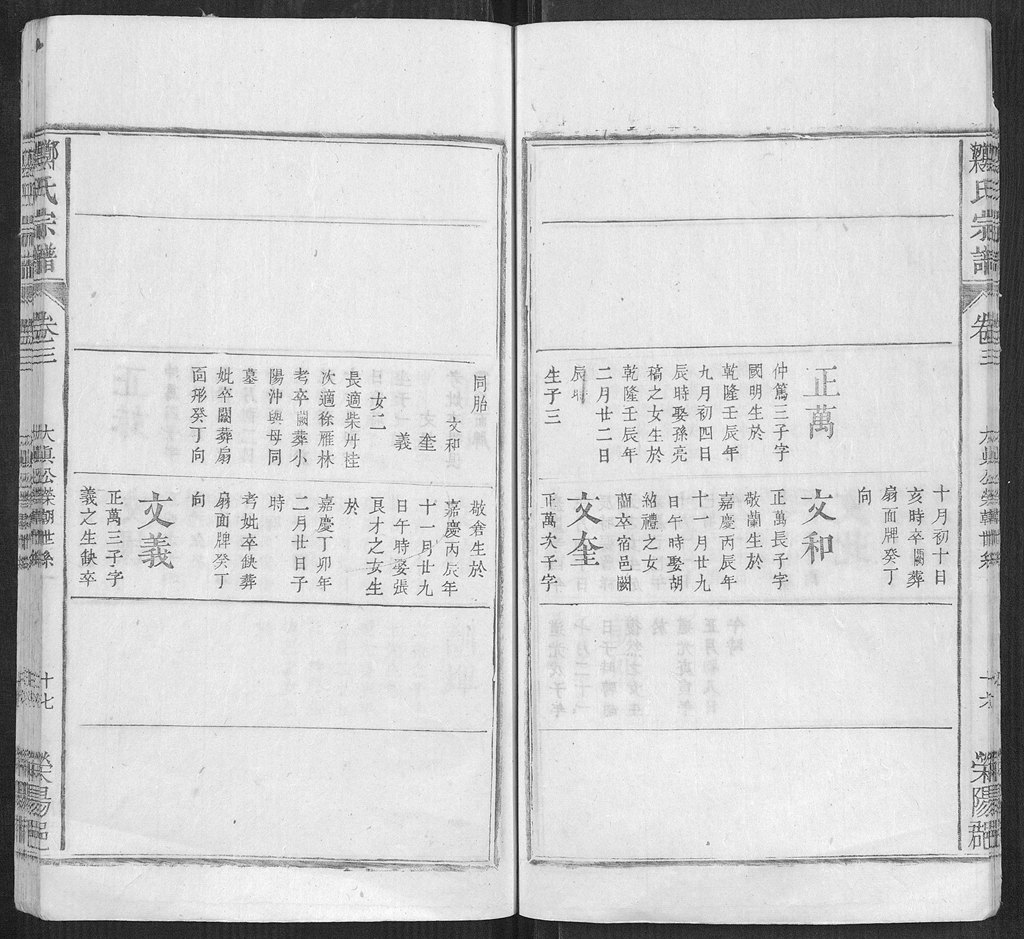 氏宗譜
卷三
正萬
仲篤三子字
國明生於
乾隆壬辰年
九月初四日
辰時娶孫亮
稿之女生於
乾隆壬辰年
二月廿二日
辰時
生子三
十月初十日
亥時卒闕葬
扇面牌癸丁
向
文和
正萬長子字
敬蘭生於
嘉慶丙辰年
十一月廿九
日午時娶胡
紹禮之女
闕卒宿邑闕
文奎
正萬次子字
同胎
文和
奎
義
女二
長適柴丹桂
次適徐雁林
考卒闕葬小
陽沖與母同
墓
妣卒闕葬扇
面形癸丁向
敬倉生於
嘉慶丙辰年
十一月廿九
日午時娶張
良才之女生
於
嘉慶丁卯年
二月廿日子
時
考妣卒缺葬
扇面牌癸丁
向
文義
正萬三子字
義之生缺卒
鄭氏宗譜
卷三
十七